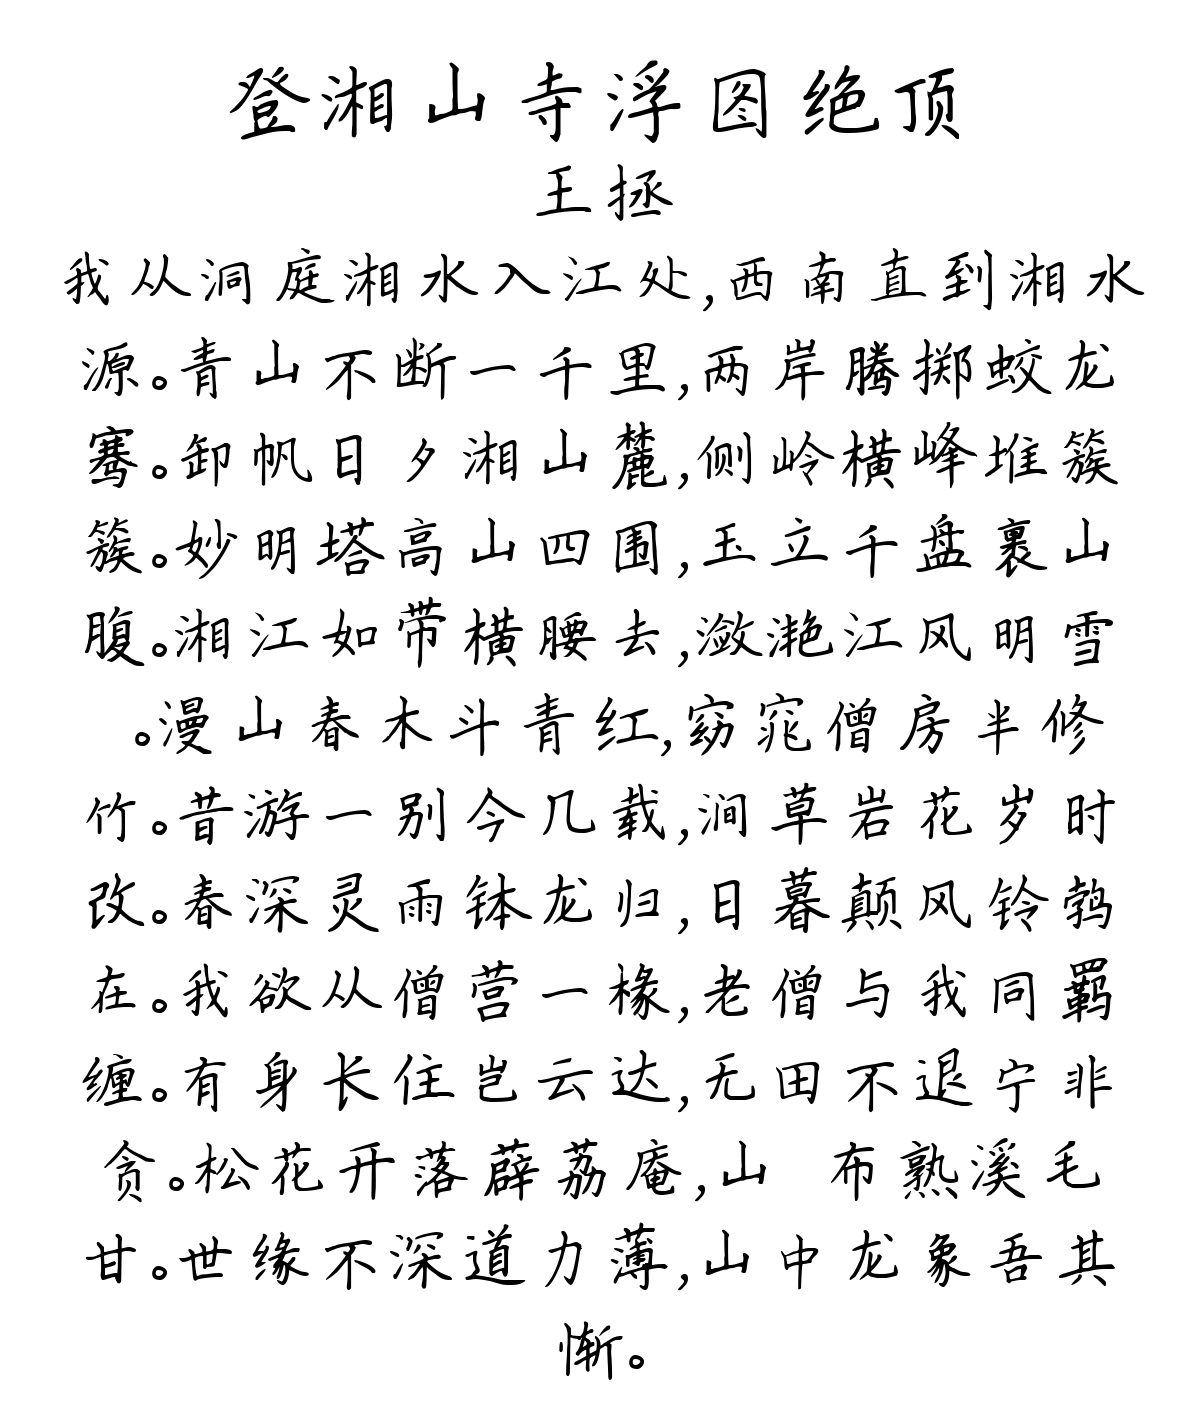 登湘山寺浮图绝顶
王拯
我从洞庭湘水入江处,西南直到湘水
源。青山不断一千里,两岸腾掷蛟龙
骞。卸帆日夕湘山麓,侧岭横峰堆簇
簇。妙明塔高山四围,玉立千盘裹山
腹。湘江如带横腰去,潋滟江风明雪
。漫山春木斗青红,窈窕僧房半修
竹。昔游一别今几载,涧草岩花岁时
改。春深灵雨钵龙归,日暮颠风铃鹁
在。我欲从僧营一椽,老僧与我同羁
缠。有身长住岂云达,无田不退宁非
贪。松花开落薜荔庵,山 布熟溪毛
甘。世缘不深道力薄,山中龙象吾其
惭。